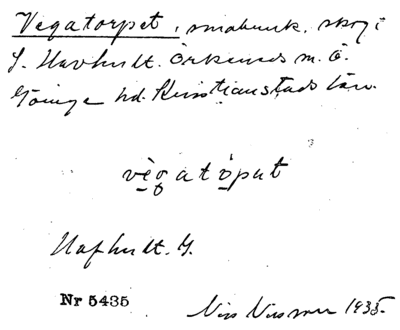 Vegatorpet, småbruk, skog i
S. Havhult. Örkeneds m. Ö.
Göinge hd. Kristianstads län.
vègatòput
Hafhult. S.
Nr 5435
1935.